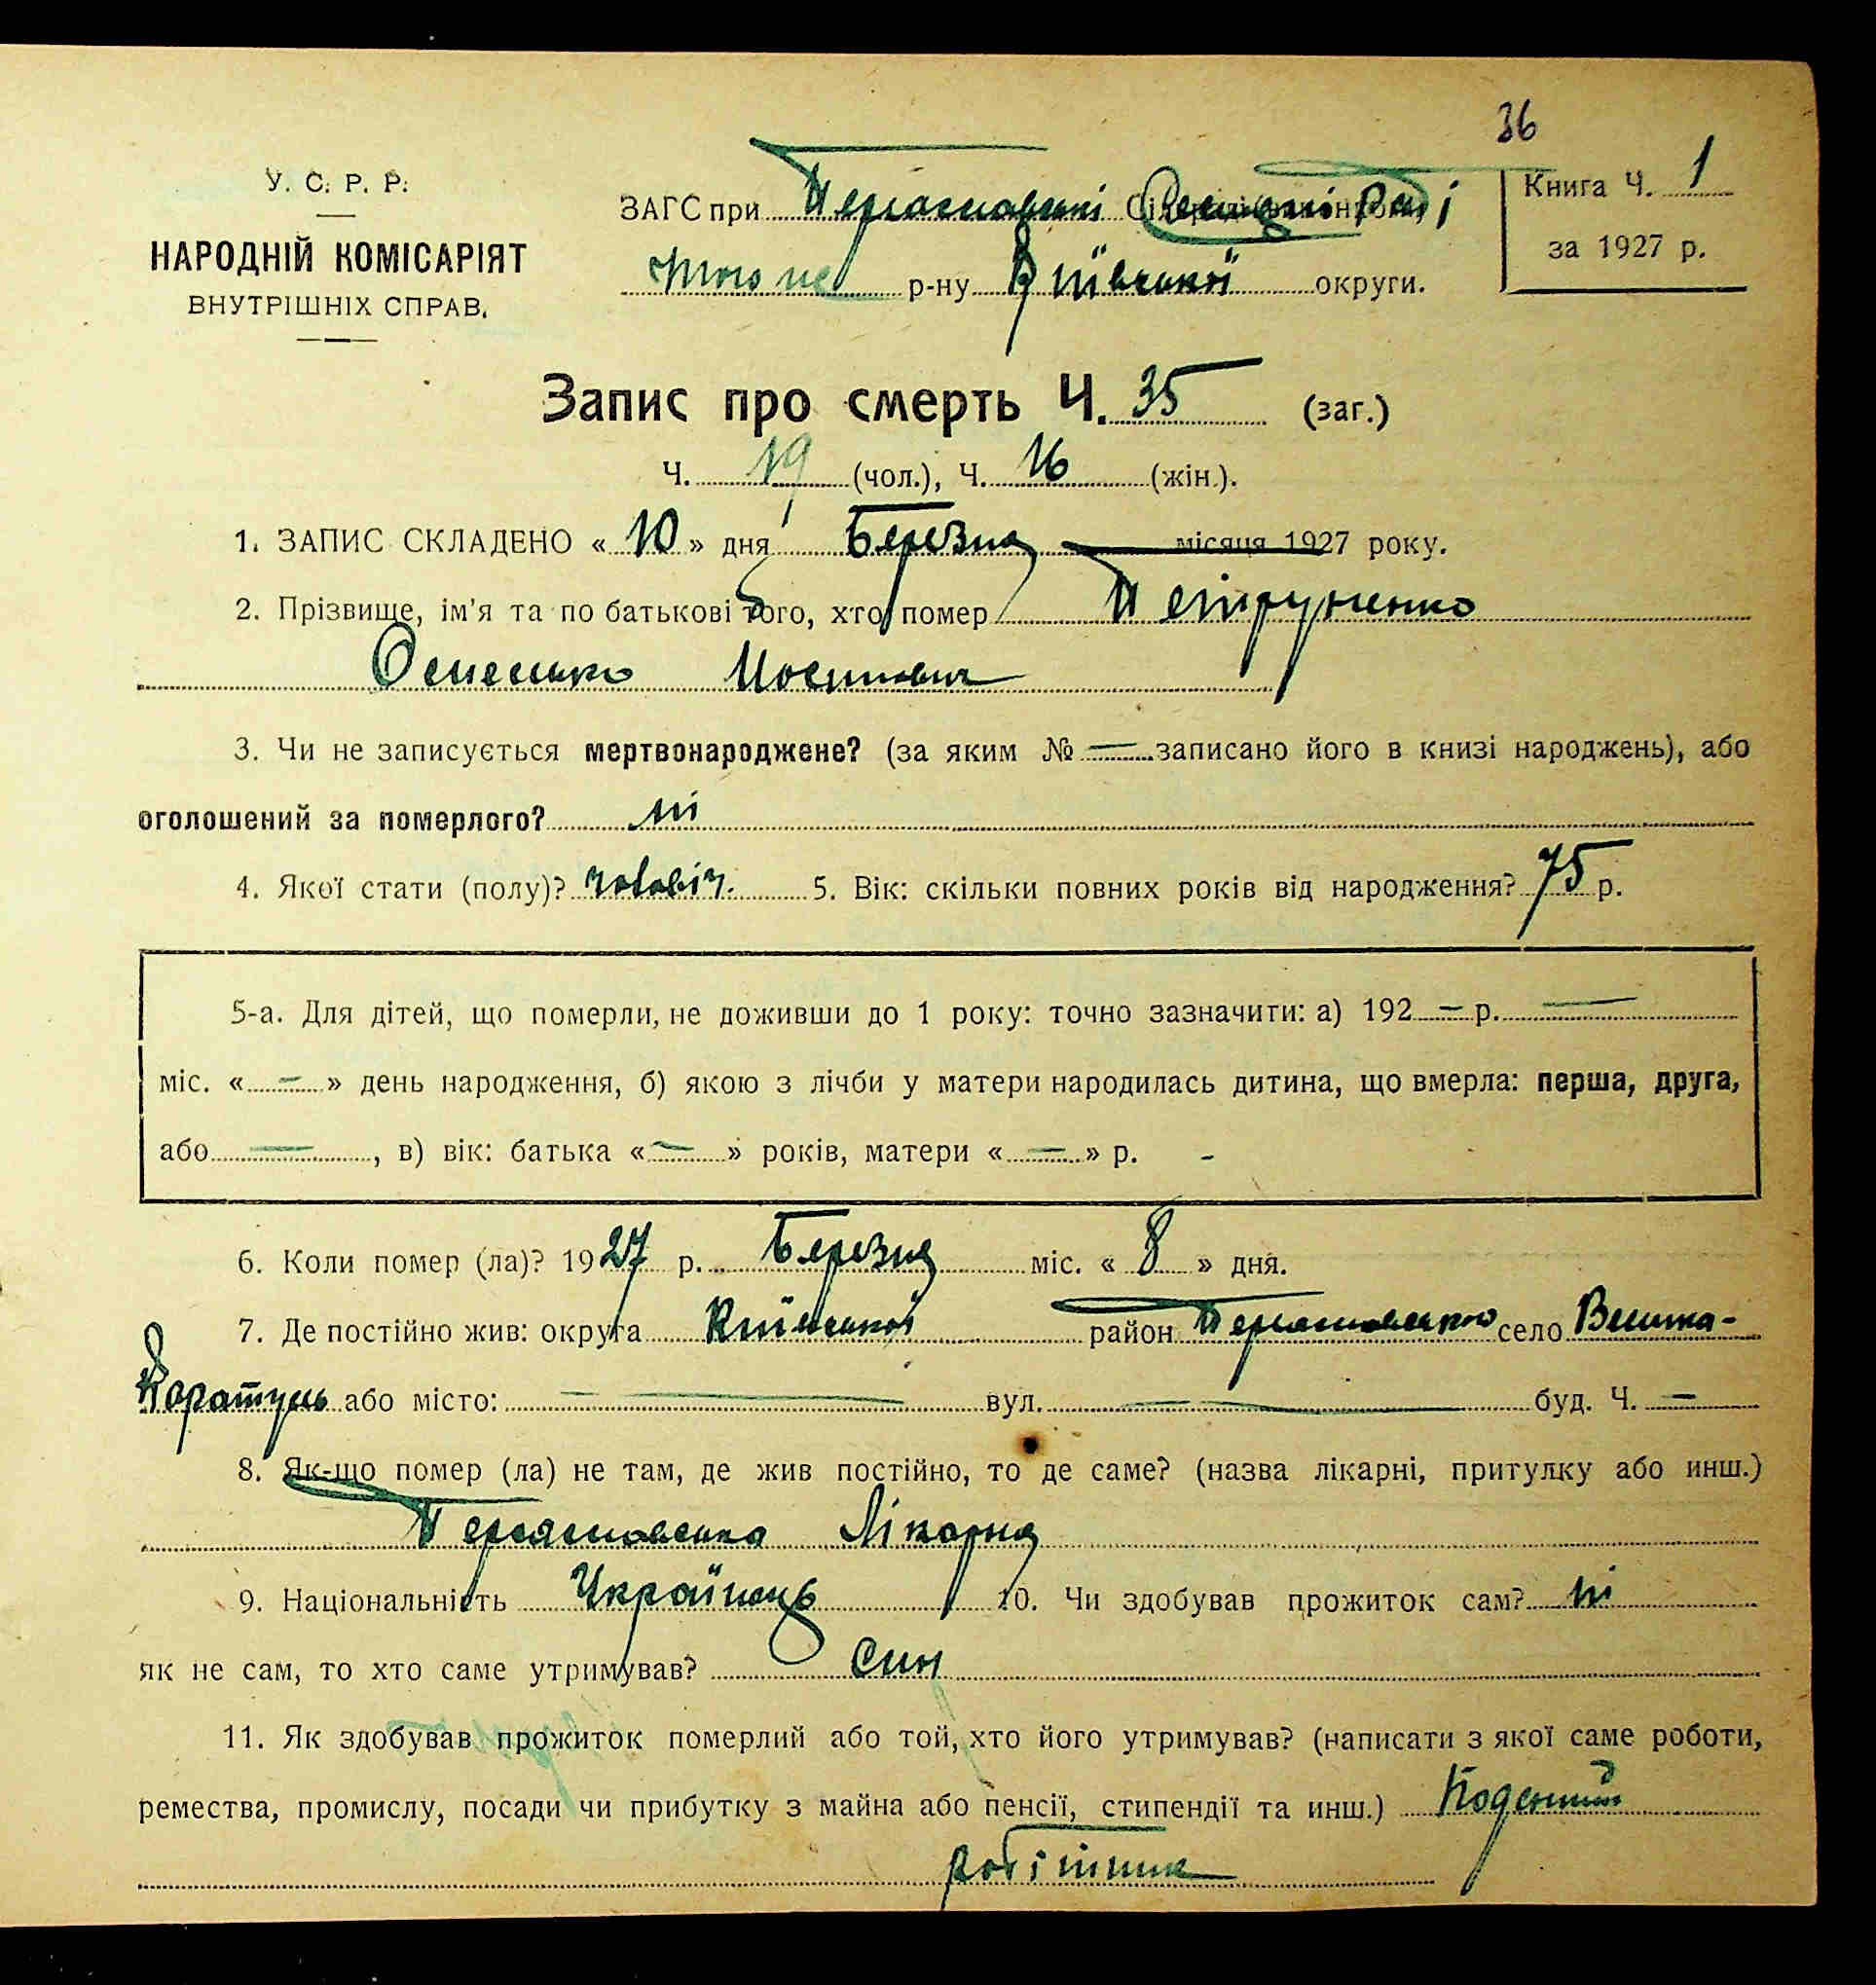 36
У. С. Р. Р.
НАРОДНІЙ КОМІСАРІЯТ
ВНУТРІШНІХ СПРАВ.
ЗАГС при Переяславській Селищній Раді
того ж р-ну Київської округи.
Книга Ч. 1
за 1927 р.
Запис про смерть Ч. 35 (заг.)
Ч. 19 (чол.), Ч. 16 (жін.).
1. ЗАПИС СКЛАДЕНО « 10 » дня Березня місяця 1927 року.
2. Прізвище, ім'я та по батькові того, хто помер Петруненко
Омелько Иосипович
3. Чи не записується мертвонароджене? (за яким № — записано його в книзі народжень), або
оголошений за померлого? ні
4. Якої стати (полу)? чоловіч. 5. Вік: скільки повних років від народження? 75 р.
5-а. Для дітей, що померли, не доживши до 1 року: точно зазначити: а) 192 — р. —
міс. « — » день народження, б) якою з лічби у матери народилась дитина, що вмерла: перша, друга,
або —, в) вік: батька « — » років, матери « — » р. -
6. Коли помер (ла)? 1927 р. Березня міс. « 8 » дня.
7. Де постійно жив: округа Київської район Переяславського село Велика-
Каратуль або місто: — вул. — буд. Ч. —
8. Як-що помер (ла) не там, де жив постійно, то де саме? (назва лікарні, притулку або инш.)
Переяславська Лікарня
9. Національність Українець 10. Чи здобував прожиток сам? ні
як не сам, то хто саме утримував? син
11. Як здобував прожиток померлий або той, хто його утримував? (написати з якої саме роботи,
ремества, промислу, посади чи прибутку з майна або пенсії, стипендії та инш.) Поденний
робітник